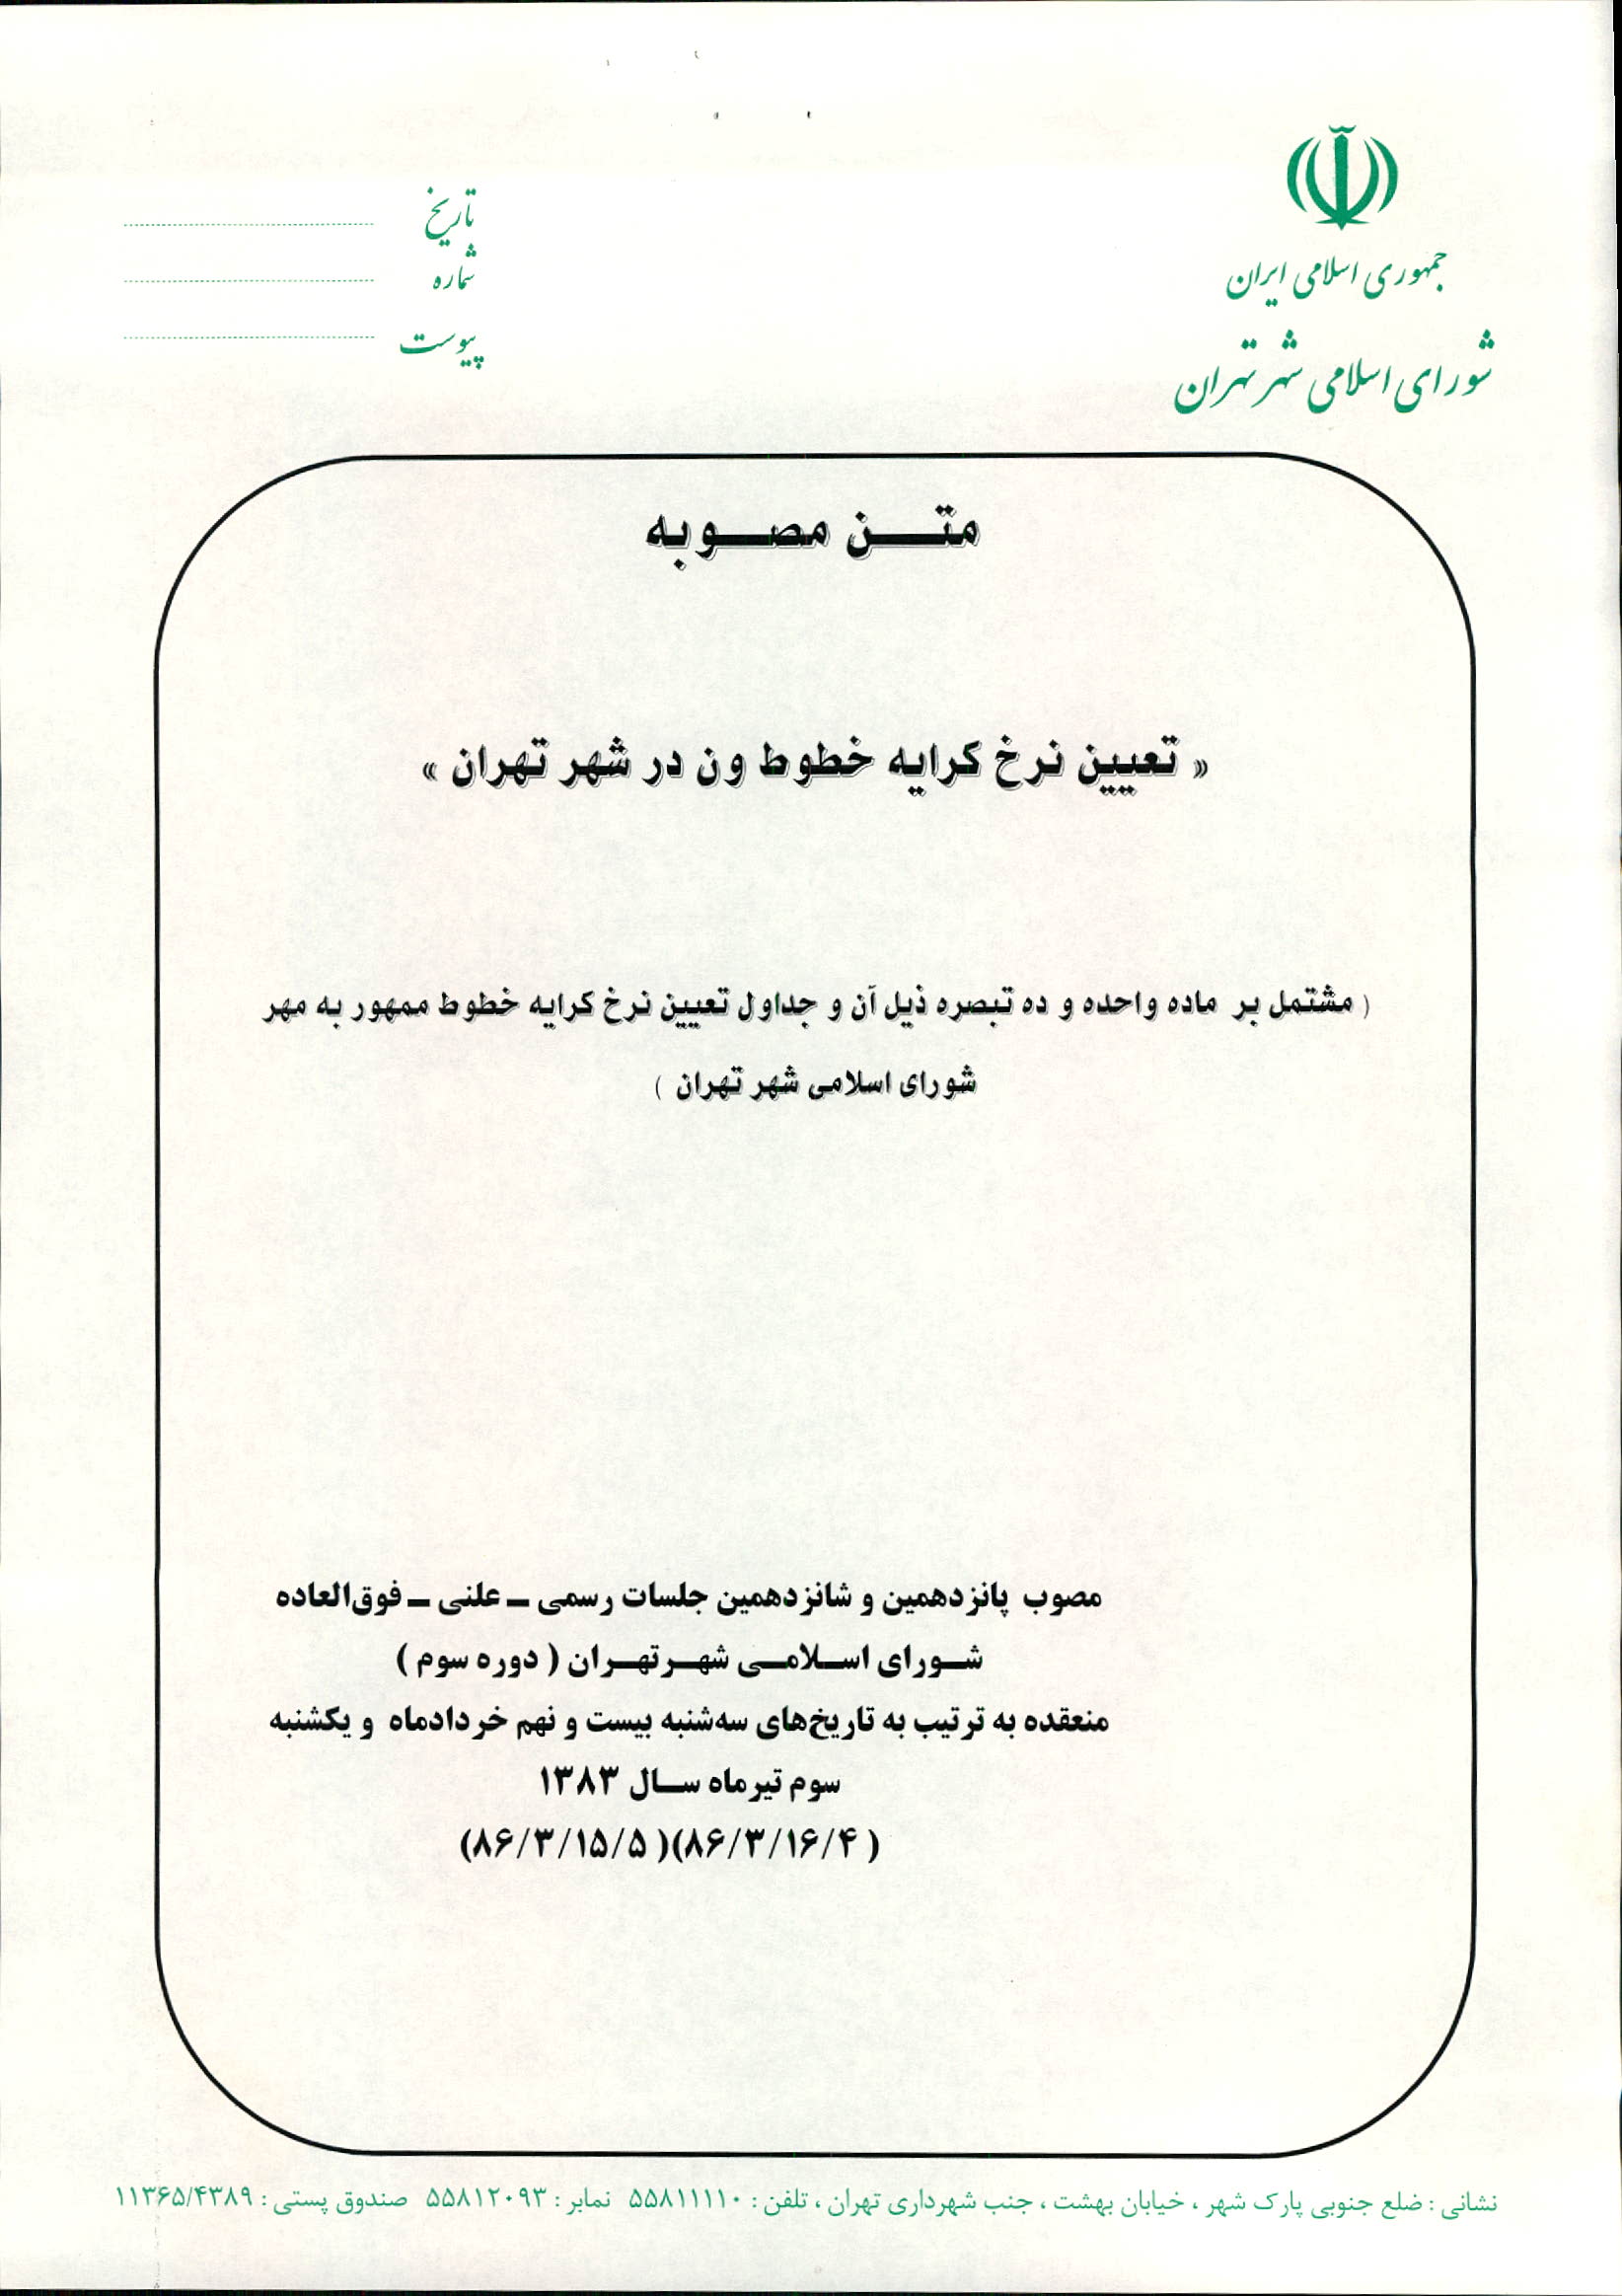 جمهوری اسلامی ایران
شورای اسلامی شهر تهران
تاریخ
شماره
پیوست
متن مصوبه
« تعیین نرخ کرایه خطوط ون در شهر تهران »
( مشتمل بر ماده واحده و ده تبصره ذیل آن و جداول تعیین نرخ کرایه خطوط ممهور به مهر
شورای اسلامی شهر تهران )
مصوب پانزدهمین و شانزدهمین جلسات رسمی ـ علنی ـ فوق‌العاده
شورای اسلامی شهر تهران ( دوره سوم )
منعقده به ترتیب به تاریخ‌های سه‌شنبه بیست و نهم خردادماه و یکشنبه
سوم تیرماه سال ۱۳۸۳
(۸۶/۳/۱۵/۵)(۸۶/۳/۱۶/۴)
نشانی : ضلع جنوبی پارک شهر ، خیابان بهشت ، جنب شهرداری تهران ، تلفن : ۵۵۸۱۱۱۱۰ نمابر : ۵۵۸۱۲۰۹۳ صندوق پستی : ۱۱۳۶۵/۴۳۸۹